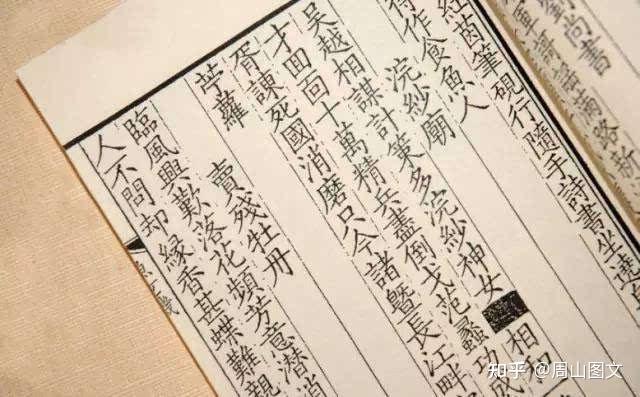 劉尚書
軍謳謠滿路新
紅茵筆硯行隨手詩書坐遶
得作食魚人
浣紗廟
吳越相謀計策多浣紗神女 相和
才回面十萬精兵盡倒戈范蠡功成
胥諫死國消磨只今諸暨長江畔
苧蘿
賣殘牡丹
臨風興歎落花頻芳意潛消
人不問却緣香甚蝶難親
知乎 @周山图文